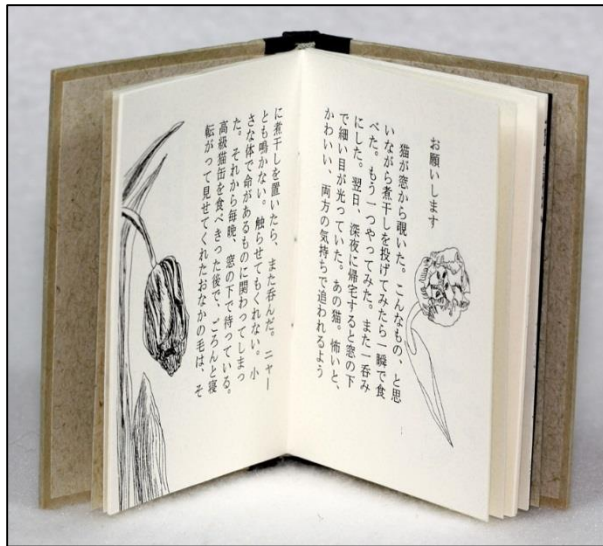 お願いします
猫が窓から覗いた。こんなもの、と思
いながら煮干しを投げてみたら一瞬で食
べた。もう一つやってみた。また一呑み
にした。翌日、深夜に帰宅すると窓の下
で細い目が光っていた。あの猫。怖いと、
かわいい、両方の気持ちで追われるよう
に煮干しを置いたら、また呑んだ。ニャー
とも鳴かない。触らせてもくれない。小
さな体で命があるものに関わってしまっ
た。それから毎晩、窓の下で待っている。
高級猫缶を食べきった後で、ごろんと寝
転がって見せてくれたおなかの毛は、そ